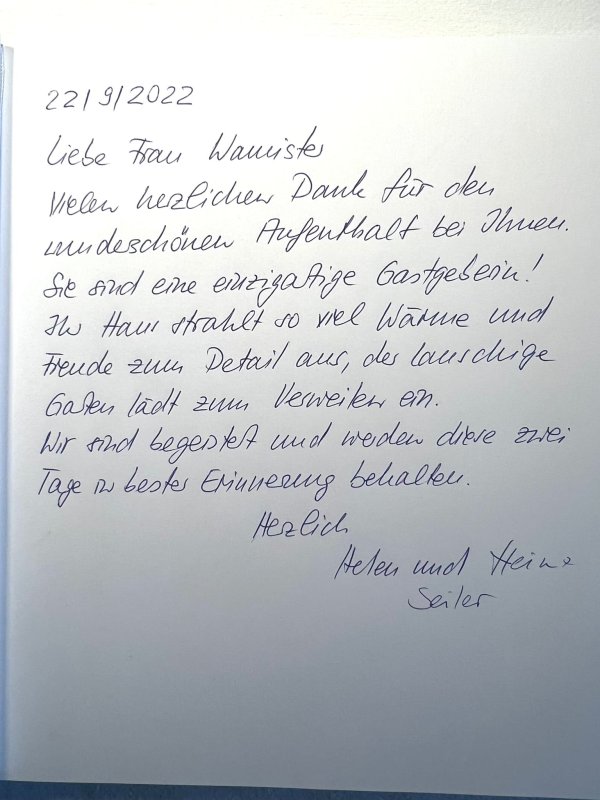 22/9/2022
Liebe Frau Wamister
Vielen herzlichen Dank für den
wunderschönen Aufenthalt bei Ihnen.
Sie sind eine einzigartige Gastgeberin!
Ihr Haus strahlt so viel Wärme und
Freude zum Detail aus, der lauschige
Garten lädt zum Verweilen ein.
Wir sind begeistert und werden diese zwei
Tage in bester Erinnerung behalten.
Herzlich
Helen und Heinz
Seiler